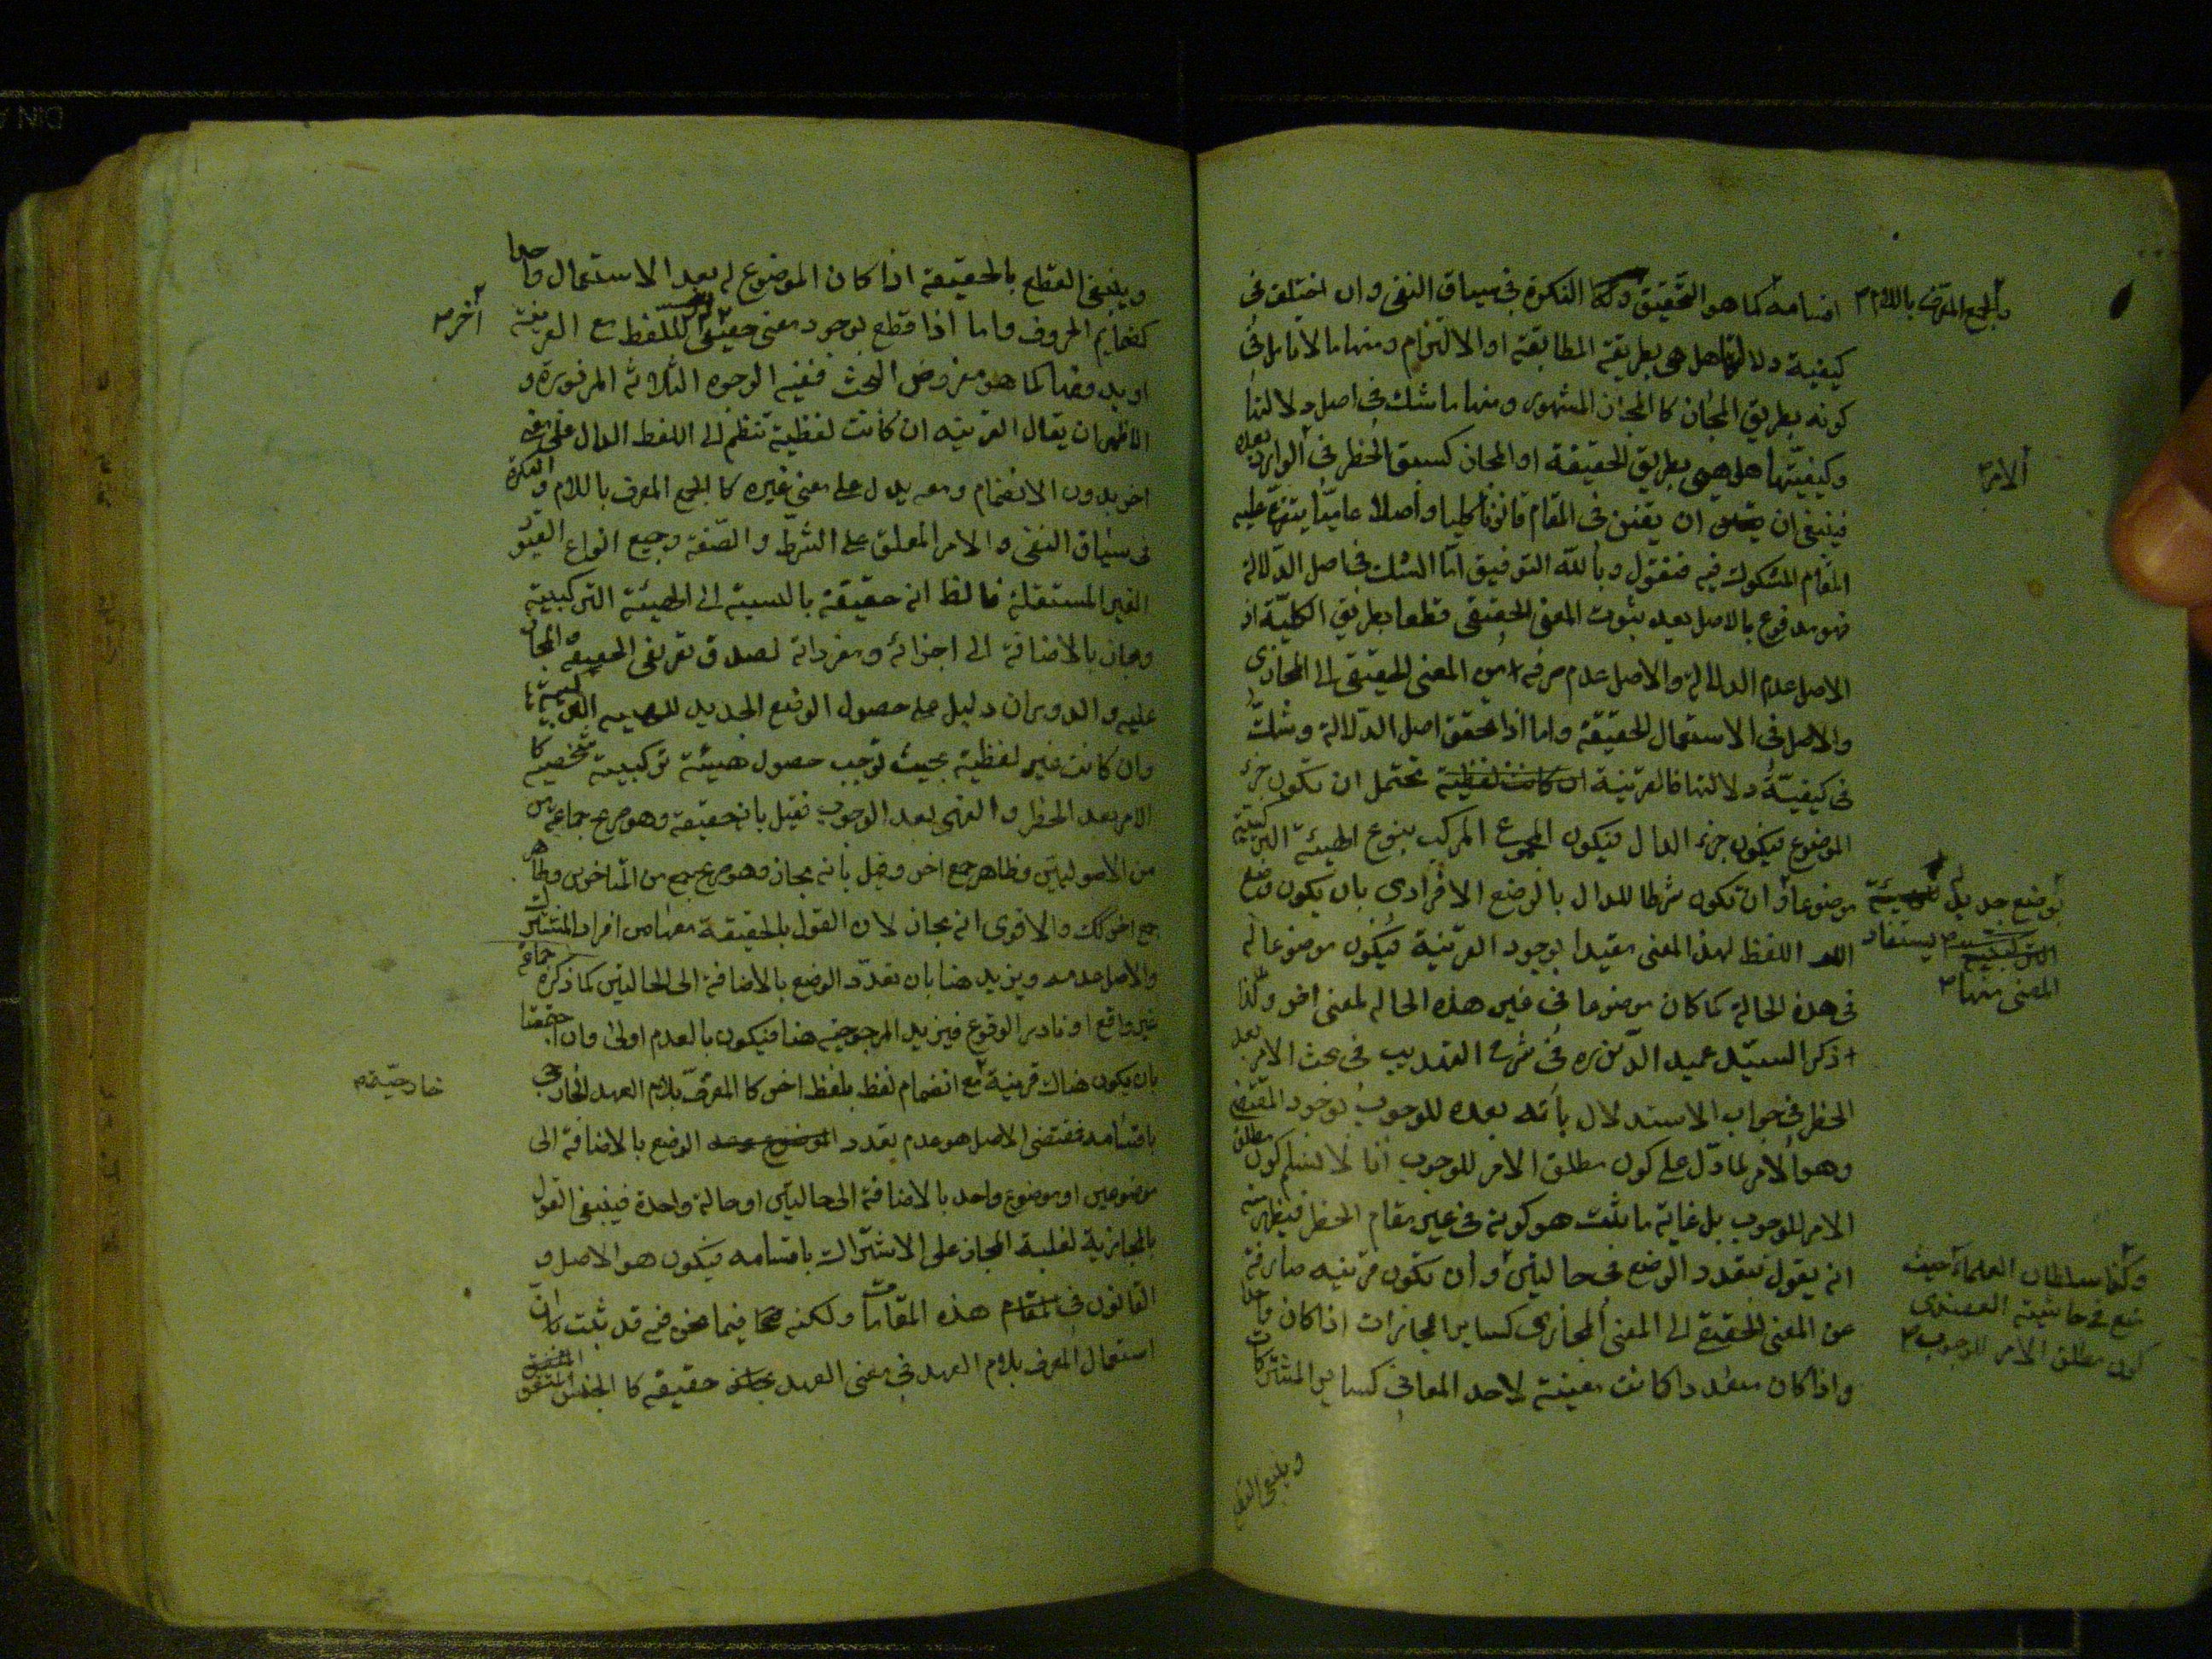 اقسامه كما هو التحقيق وكذا النكرة في سياق النفي وان اختلف في
والجمع المعرف باللام
كيفية دلالتها هل هي بطريقة المطابقة او الالتزام ومنها ما لا تامل في
كونه بطريق المجاز كالمجاز المشهور ومنها ما شك في اصل دلالتها
وكيفيتها هل هي بطريق الحقيقة او المجاز كسبق الحظر في الوارد بعده
الامر
فينبغي ان يقنن في المقام قانونا كليا واصلا عاميا يتفرع عليه
المقام المشكوك فيه فنقول وبالله التوفيق اما الشك في اصل الدلالة
فهو مدفوع بالاصل بعد ثبوت المعنى الحقيقي قطعا بطريق الكلية اذ
الاصل عدم الدلالة والاصل عدم صرفه من المعنى الحقيقي الى المجازي
والاصل في الاستعمال الحقيقة واما اذا تحقق اصل الدلالة وشك
في كيفية دلالتها فالقرينة ان كانت لفظية تحتمل ان تكون جزء
الموضوع فيكون جزء الدال فيكون المجموع المركب بنوع الهيئة التركيبية
موضوعا او ان تكون شرطا للدال بالوضع الافرادي بان يكون وضع
بوضع جديد
التركيبية يستفاد
المعنى منها
اللفظ لهذا المعنى مقيدا بوجود القرينة فيكون موضوعا له
في هذه الحالة كما كان موضوعا في غير هذه الحالة لمعنى اخر وكذا
ذكر السيد عميد الدين ره في شرح التهذيب في بحث الامر بعد
الحظر في جواب الاستدلال بانه بعده للوجوب لوجود المقتضي
وهو الامر لما دل على كون مطلق الامر للوجوب انا لا نسلم كون مطلق
الامر للوجوب بل غاية ما ثبت هو كونه في غير مقام الحظر فيظهر منه
انه يقول بتعدد الوضع في حالتين او ان تكون قرينه صارفة
وكذا سلطان العلماء حيث
منع في حاشية العضدي
كون مطلق الامر للوجوب
عن المعنى الحقيقي الى المعنى المجازي كساير المجازات اذا كان واحدا
واذا كان متعددا كانت معينة لاحد المعاني كساير المشتركات
وينبغي القطع
وينبغي القطع بالحقيقة اذا كان الموضوع له بعد الاستعمال واحدا
كضمايم الحروف واما اذا قطع بوجود معنى حقيقي للفظ مع القرينة
آخر
او بدونها كما هو مفروض البحث ففيه الوجوه الثلاثة المزبورة و
الاظهر ان يقال القرينة ان كانت لفظية تنظم الى اللفظ الدال على معنى
اخر بدون الانضمام ومعه يدل على معنى غيره كالجمع المعرف باللام والنكرة
في سياق النفي والامر المعلق على الشرط والصفة وجميع انواع القيود
الغير المستقلة فالظ انه حقيقة بالنسبة الى الهيئة التركيبية
ومجاز بالاضافة الى اجزائه ومفرداته لصدق تعريفي الحقيقة والمجاز
عليه والدوران دليل على حصول الوضع الجديد للهيئة التركيبية
وان كانت غير لفظية بحيث توجب حصول هيئة تركيبية شخصية كا
الامر بعد الحظر والنهي بعد الوجوب فقيل بانه حقيقة وهو صريح جماعة
من الاصوليين وظاهر جمع اخر وقيل بانه مجاز وهو صريح جمع من المتاخرين وظاهر
جمع اخر كك والاقوى انه مجاز لان القول بالحقيقة معها من افراد المشترك
والاصل عدمه ويزيد هنا بان تعدد الوضع بالاضافة الى الحالتين كما ذكره جماعة
غير واقع او نادر الوقوع فيزيد المرجوحية هنا فيكون بالعدم اولى وان اجتمعتا
بان يكون هناك قرينة مع انضمام لفظ بلفظ اخر كالمعرف بلام العهد الخارجي
خارجية
باقسامه فمقتضى الاصل هو عدم تعدد الموضوع الوضع بالاضافة الى
موضوعين او موضوع واحد بالاضافة الى حالتين او حالة واحدة فينبغي القول
بالمجازية لغلبة المجاز على الاشتراك باقسامه فيكون هو الاصل و
القانون في المقام هذه المقامات ولكنه فيما نحن فيه قد ثبت ان
استعمال المعرف بلام العهد في معنى العهد مجاز حقيقة كا الجنس المتفق